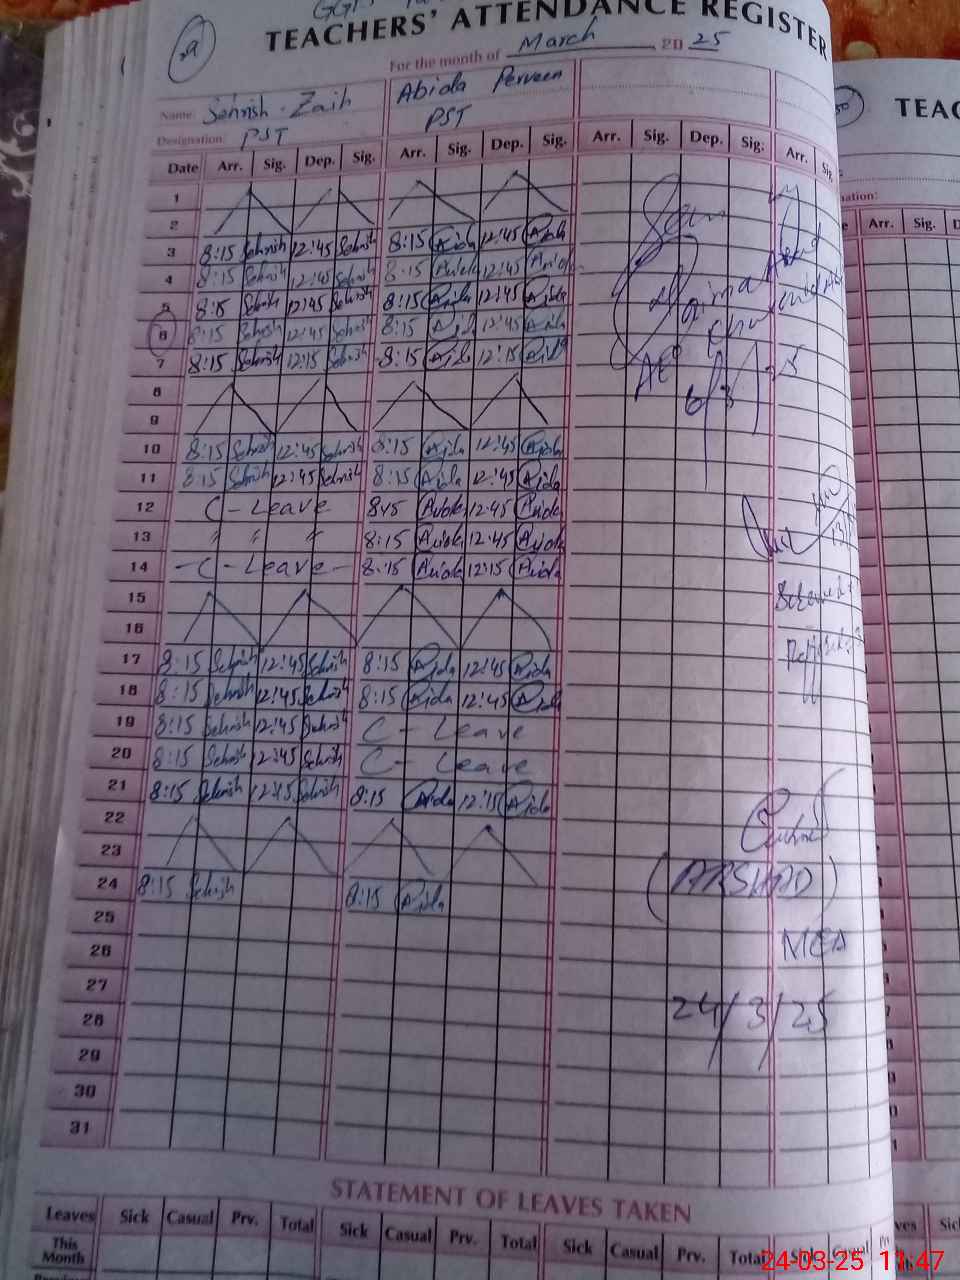 TEACHERS' ATTENDANCE REGISTER
For the month of March 2025
Name: Sehrish Zaib Abida Perveen
Designation: PST PST
Date Arr. Sig. Dep. Sig. Arr. Sig. Dep. Sig. Arr. Sig. Dep. Sig: Arr.
1
2
3 8:15 Sehrish 12:45 Sehrish 8:15 Aida 12:45 Aida
4 8:15 Sehrish 12:45 Sehrish 8:15 Aida 12:45 Aida
5 8:15 Sehrish 12:45 Sehrish 8:15 Aida 12:45 Aida
6 8:15 Sehrish 12:45 Sehrish 8:15 Aida 12:45 Aida
7 8:15 Sehrish 12:15 Sehrish 8:15 Aida 12:15 Aida
AEO
6/3/25
8
9
10 8:15 Sehrish 12:45 Sehrish 8:15 Aida 12:45 Aida
11 8:15 Sehrish 12:45 Sehrish 8:15 Aida 12:45 Aida
12 C-Leave 8:15 Aida 12:45 Aida
13 " " " 8:15 Aida 12:45 Aida
14 -C-Leave- 8:15 Aida 12:15 Aida
15
16
17 8:15 Sehrish 12:45 Sehrish 8:15 Aida 12:45 Aida
18 8:15 Sehrish 12:45 Sehrish 8:15 Aida 12:45 Aida
19 8:15 Sehrish 12:45 Sehrish C-Leave
20 8:15 Sehrish 12:45 Sehrish C-Leave
21 8:15 Sehrish 12:15 Sehrish 8:15 Aida 12:15 Aida
22
23
24 8:15 Sehrish 8:15 Aida
(ARSHAD)
25
26 MEA
27
28 24/3/25
29
30
31
STATEMENT OF LEAVES TAKEN
Leaves Sick Casual Prv. Total Sick Casual Prv. Total Sick Casual Prv. Total Sick Casual
This Month
TEAC
Arr. Sig.
24-03-25 11:47